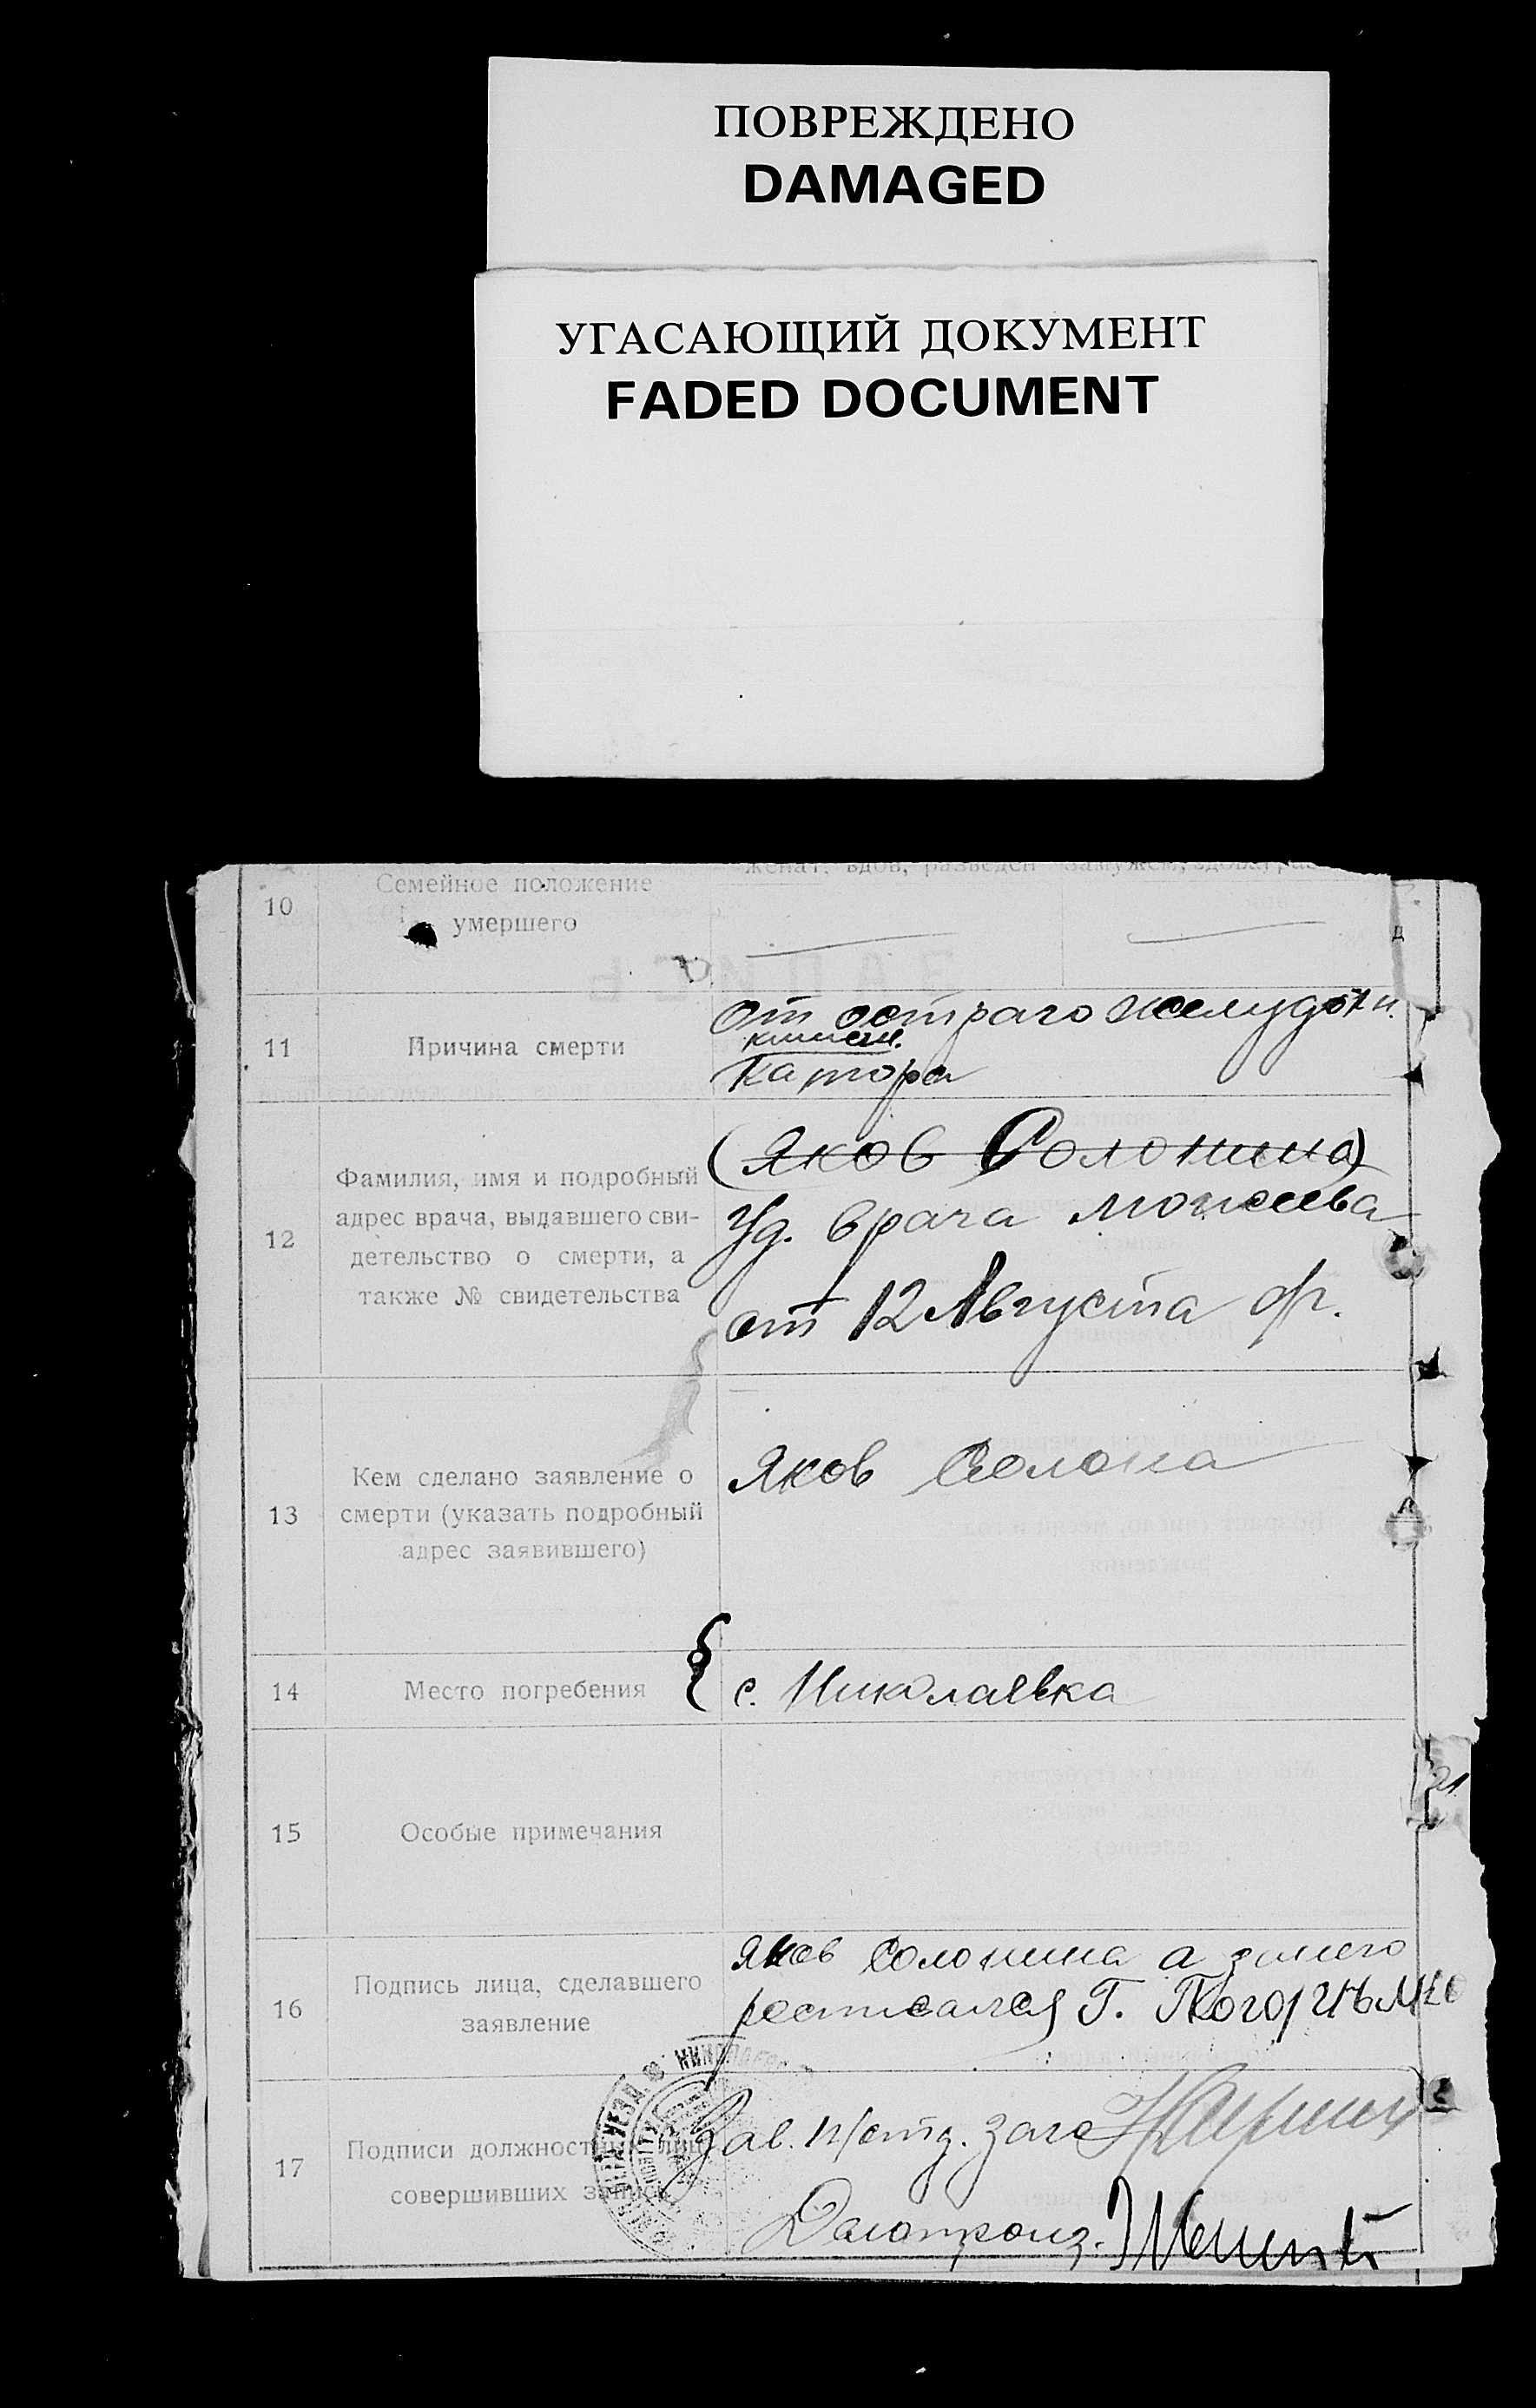 ПОВРЕЖДЕНО
DAMAGED
УГАСАЮЩИЙ ДОКУМЕНТ
FADED DOCUMENT
женат, вдов, разведен
10
Семейное положение
умершего
от остраго желудочн.
кишечн.
11
Причина смерти
катора
(Яков Солонина)
Фамилия, имя и подробный
адрес врача, выдавшего сви-
детельство о смерти, а
также № свидетельства
12
Уд. врача
от 12 Августа
Кем сделано заявление о
смерти (указать подробный
адрес заявившего)
13
Яков
14
Место погребения
с. Николаевка
15
Особые примечания
Яков Солонина а занего
росписался Г.
16
Подпись лица, сделавшего
заявление
Зав. п/отд. загс
17
Подписи должностных лиц,
совершивших запись
Делопроиз.